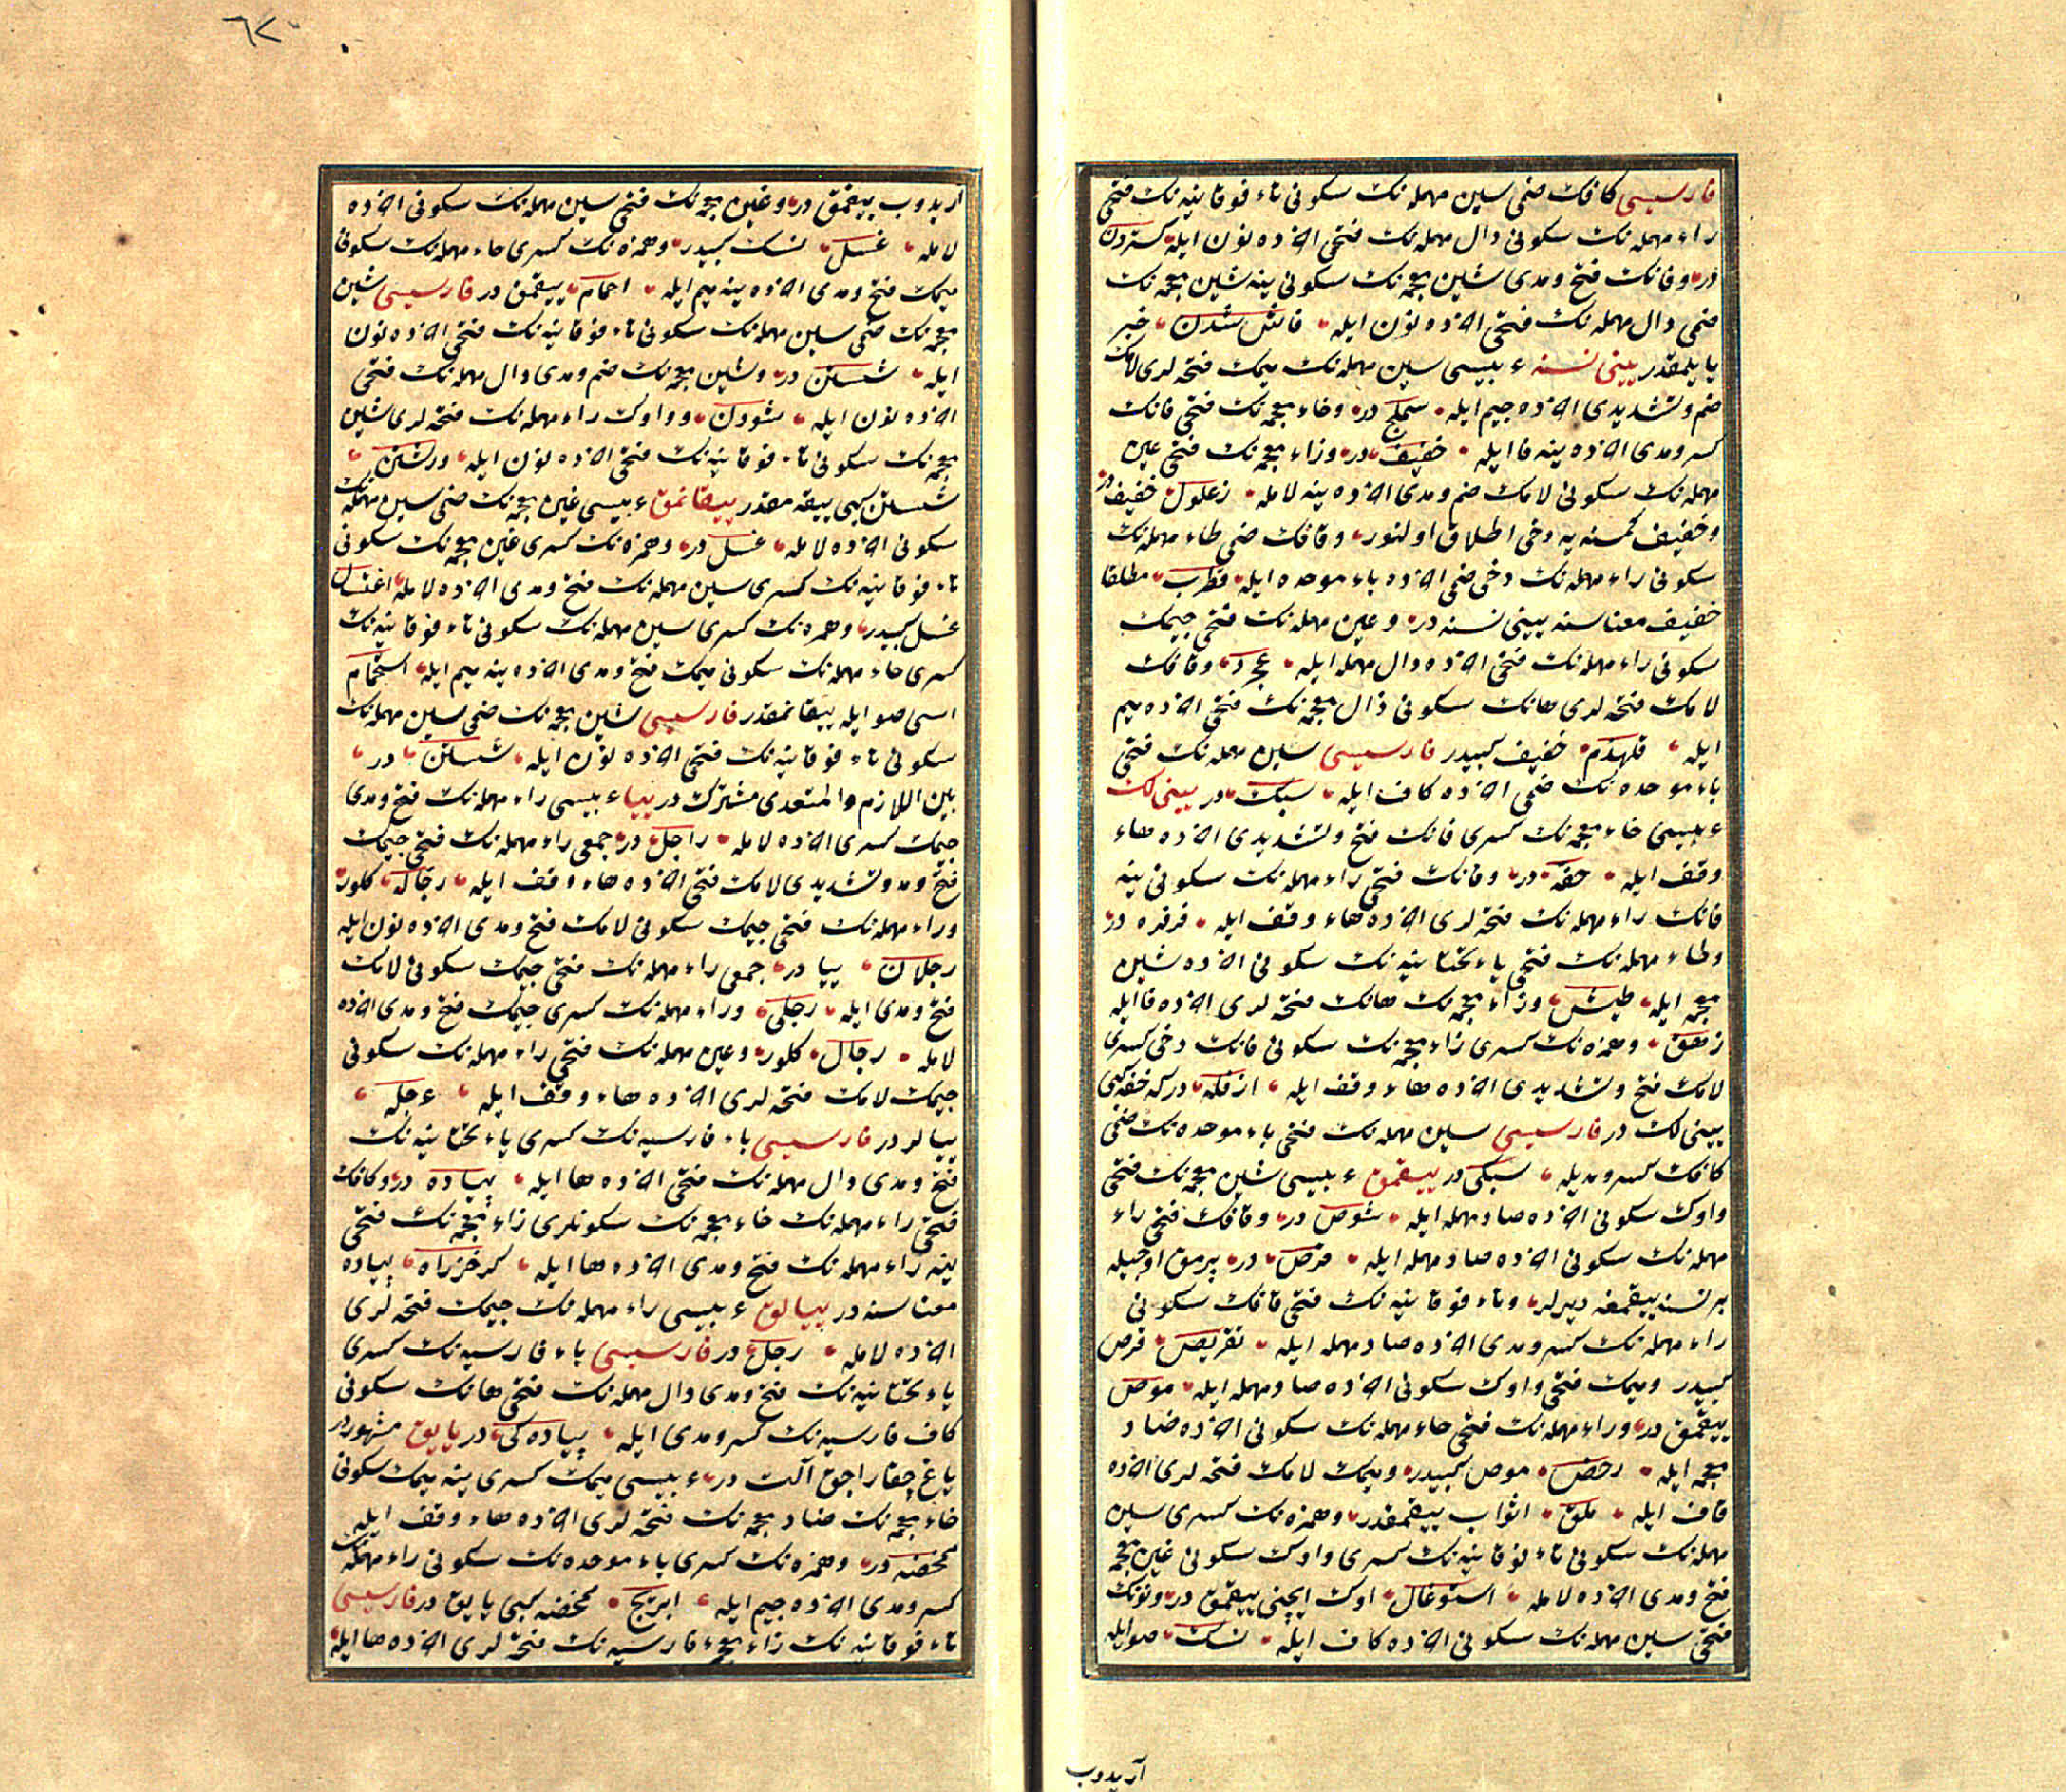 فارسیسی کافك ضمی سین مهمله نك سكونی تاء فوقانیه نك فتحی
راء مهمله نك سكونی دال مهمله نك فتحی اخرده نون ایله ستردن
در وفانك فتح ومدی شین معجمه نك سكونی ینه شین معجمه نك
ضمی دال مهمله نك فتحی اخرده نون ایله فاش شدن خبر
یایلمقدر یینی نسنه عربیسی سین مهمله نك میمك فتحه لری لامك
ضم وتشدیدی اخرده جیم ایله سملج در وخاء معجمه نك فتحی فانك
كسر ومدی اخرده ینه فا ایله خفیف در وزاء معجمه نك فتحی عین
مهمله نك سكونی لامك ضم ومدی اخرده ینه لامله زعلول خفیف در
وخفیف كمسنه یه دخی اطلاق اولنور وقافك ضمی طاء مهمله نك
سكونی راء مهمله نك دخی ضمی اخرده باء موحده ایله قطرب مطلقا
خفیف معناسنه یینی نسنه در وعین مهمله نك فتحی جیمك
سكونی راء مهمله نك فتحی اخرده دال مهمله ایله عجرد وقافك
لامك فتحه لری هانك سكونی ذال معجمه نك فتحی اخرده میم
ایله قلهذم خفیف كبیدر فارسیسی سین مهمله نك فتحی
باء موحده نك ضمی اخرده كاف ایله سبك در یینی لك
عربیسی خاء معجمه نك كسری فانك فتح وتشدیدی اخرده هاء
وقف ایله خفه در وفانك فتحی راء مهمله نك سكونی ینه
فانك راء مهمله نك فتحه لری اخرده هاء وقف ایله فرفره در
وطاء مهمله نك فتحی یاء تحتانیه نك سكونی اخرده شین
معجمه ایله طیش وزاء معجمه نك هانك فتحه لری اخرده فا ایله
زهف وهمزه نك كسری زاء معجمه نك سكونی فانك دخی كسری
لامك فتح وتشدیدی اخرده هاء وقف ایله ازفله در كه خفه كبی
یینی لك در فارسیسی سین مهمله نك فتحی باء موحده نك ضمی
كافك كسر ومدیله سبكی در ییقمق عربیسی شین معجمه نك فتحی
واوك سكونی اخرده صاد مهمله ایله شوص در وقافك فتحی راء
مهمله نك سكونی اخرده صاد مهمله ایله قرص در پرمق اوجیله
بر نسنه ییقمغه دیرلر وتاء فوقانیه نك فتحی قافك سكونی
راء مهمله نك كسر ومدی اخرده صاد مهمله ایله تقریص قرص
كبیدر ومیمك فتحی واوك سكونی اخرده صاد مهمله ایله موص
ییقمق در وراء مهمله نك فتحی حاء مهمله نك سكونی اخرده ضاد
معجمه ایله رحض موص كبیدر ومیمك لامك فتحه لری اخرده
قاف ایله ملق اثواب ییقمقدر وهمزه نك كسری سین
مهمله نك سكونی تاء فوقانیه نك كسری واوك سكونی غین معجمه
فتح ومدی اخرده لامله استوغال اوك ایچنی ییقمق در ونونك
فتحی سین مهمله نك سكونی اخرده كاف ایله نسك صو ایله
آریدوب
٦٢
اریدوب ییقمق در وغین معجمه نك فتحی سین مهمله نك سكونی اخرده
لامله غسل نسك كبیدر وهمزه نك كسری حاء مهمله نك سكونی
میمك فتح ومدی اخرده ینه میم ایله احمام ییقمق در فارسیسی شین
معجمه نك ضمی سین مهمله نك سكونی تاء فوقانیه نك فتحی اخرده نون
ایله شستن در وشین معجمه نك ضم ومدی دال مهمله نك فتحی
اخرده نون ایله شودن وواوك راء مهمله نك فتحه لری شین
معجمه نك سكونی تاء فوقانیه نك فتحی اخرده نون ایله ورشتن
شستن كبی ییقه مقدر ییقانمق عربیسی غین معجمه نك ضمی سین مهمله نك
سكونی اخرده لامله غسل در وهمزه نك كسری غین معجمه نك سكونی
تاء فوقانیه نك كسری سین مهمله نك فتح ومدی اخرده لامله اغتسال
غسل كبیدر وهمزه نك كسری سین مهمله نك سكونی تاء فوقانیه نك
كسری حاء مهمله نك سكونی میمك فتح ومدی اخرده ینه میم ایله استحمام
اسی صو ایله ییقانمقدر فارسیسی شین معجمه نك ضمی سین مهمله نك
سكونی تاء فوقانیه نك فتحی اخرده نون ایله شستن در
بین اللازم والمتعدی مشترك در پیاء عربیسی راء مهمله نك فتح ومدی
جیمك كسری اخرده لامله راجل در جمعی راء مهمله نك فتحی جیمك
فتح ومد وتشدیدی لامك فتحی اخرده هاء وقف ایله رجاله كلور
وراء مهمله نك فتحی جیمك سكونی لامك فتح ومدی اخرده نون ایله
رجلان پیا در جمعی راء مهمله نك فتحی جیمك سكونی لامك
فتح ومدی ایله رجلی وراء مهمله نك كسری جیمك فتح ومدی اخرده
لامله رجال كلور وعین مهمله نك فتحی راء مهمله نك سكونی
جیمك لامك فتحه لری اخرده هاء وقف ایله عرجله
پیالر در فارسیسی باء فارسیه نك كسری یاء تحتانیه نك
فتح ومدی دال مهمله نك فتحی اخرده ها ایله پیاده در وكافك
فتحی راء مهمله نك خاء معجمه نك سكونلری زاء معجمه نك فتحی
ینه راء مهمله نك فتح ومدی اخرده ها ایله كرخزراه پیاده
معناسنه در پیالق عربیسی راء مهمله نك جیمك فتحه لری
اخرده لامله رجل در فارسیسی باء فارسیه نك كسری
یاء تحتانیه نك فتح ومدی دال مهمله نك فتحی هانك سكونی
كاف فارسیه نك كسر ومدی ایله پیاده كی در یایق مشهور در
یاغ چقاراجق آلت در عربیسی میمك كسری ینه میمك سكونی
خاء معجمه نك ضاد معجمه نك فتحه لری اخرده هاء وقف ایله
ممخضه در وهمزه نك كسری باء موحده نك سكونی راء مهمله نك
كسر ومدی اخرده جیم ایله ابریج ممخضه كبی یایق در فارسیسی
تاء فوقانیه نك زاء معجمه ء فارسیه نك فتحه لری اخرده ها ایله